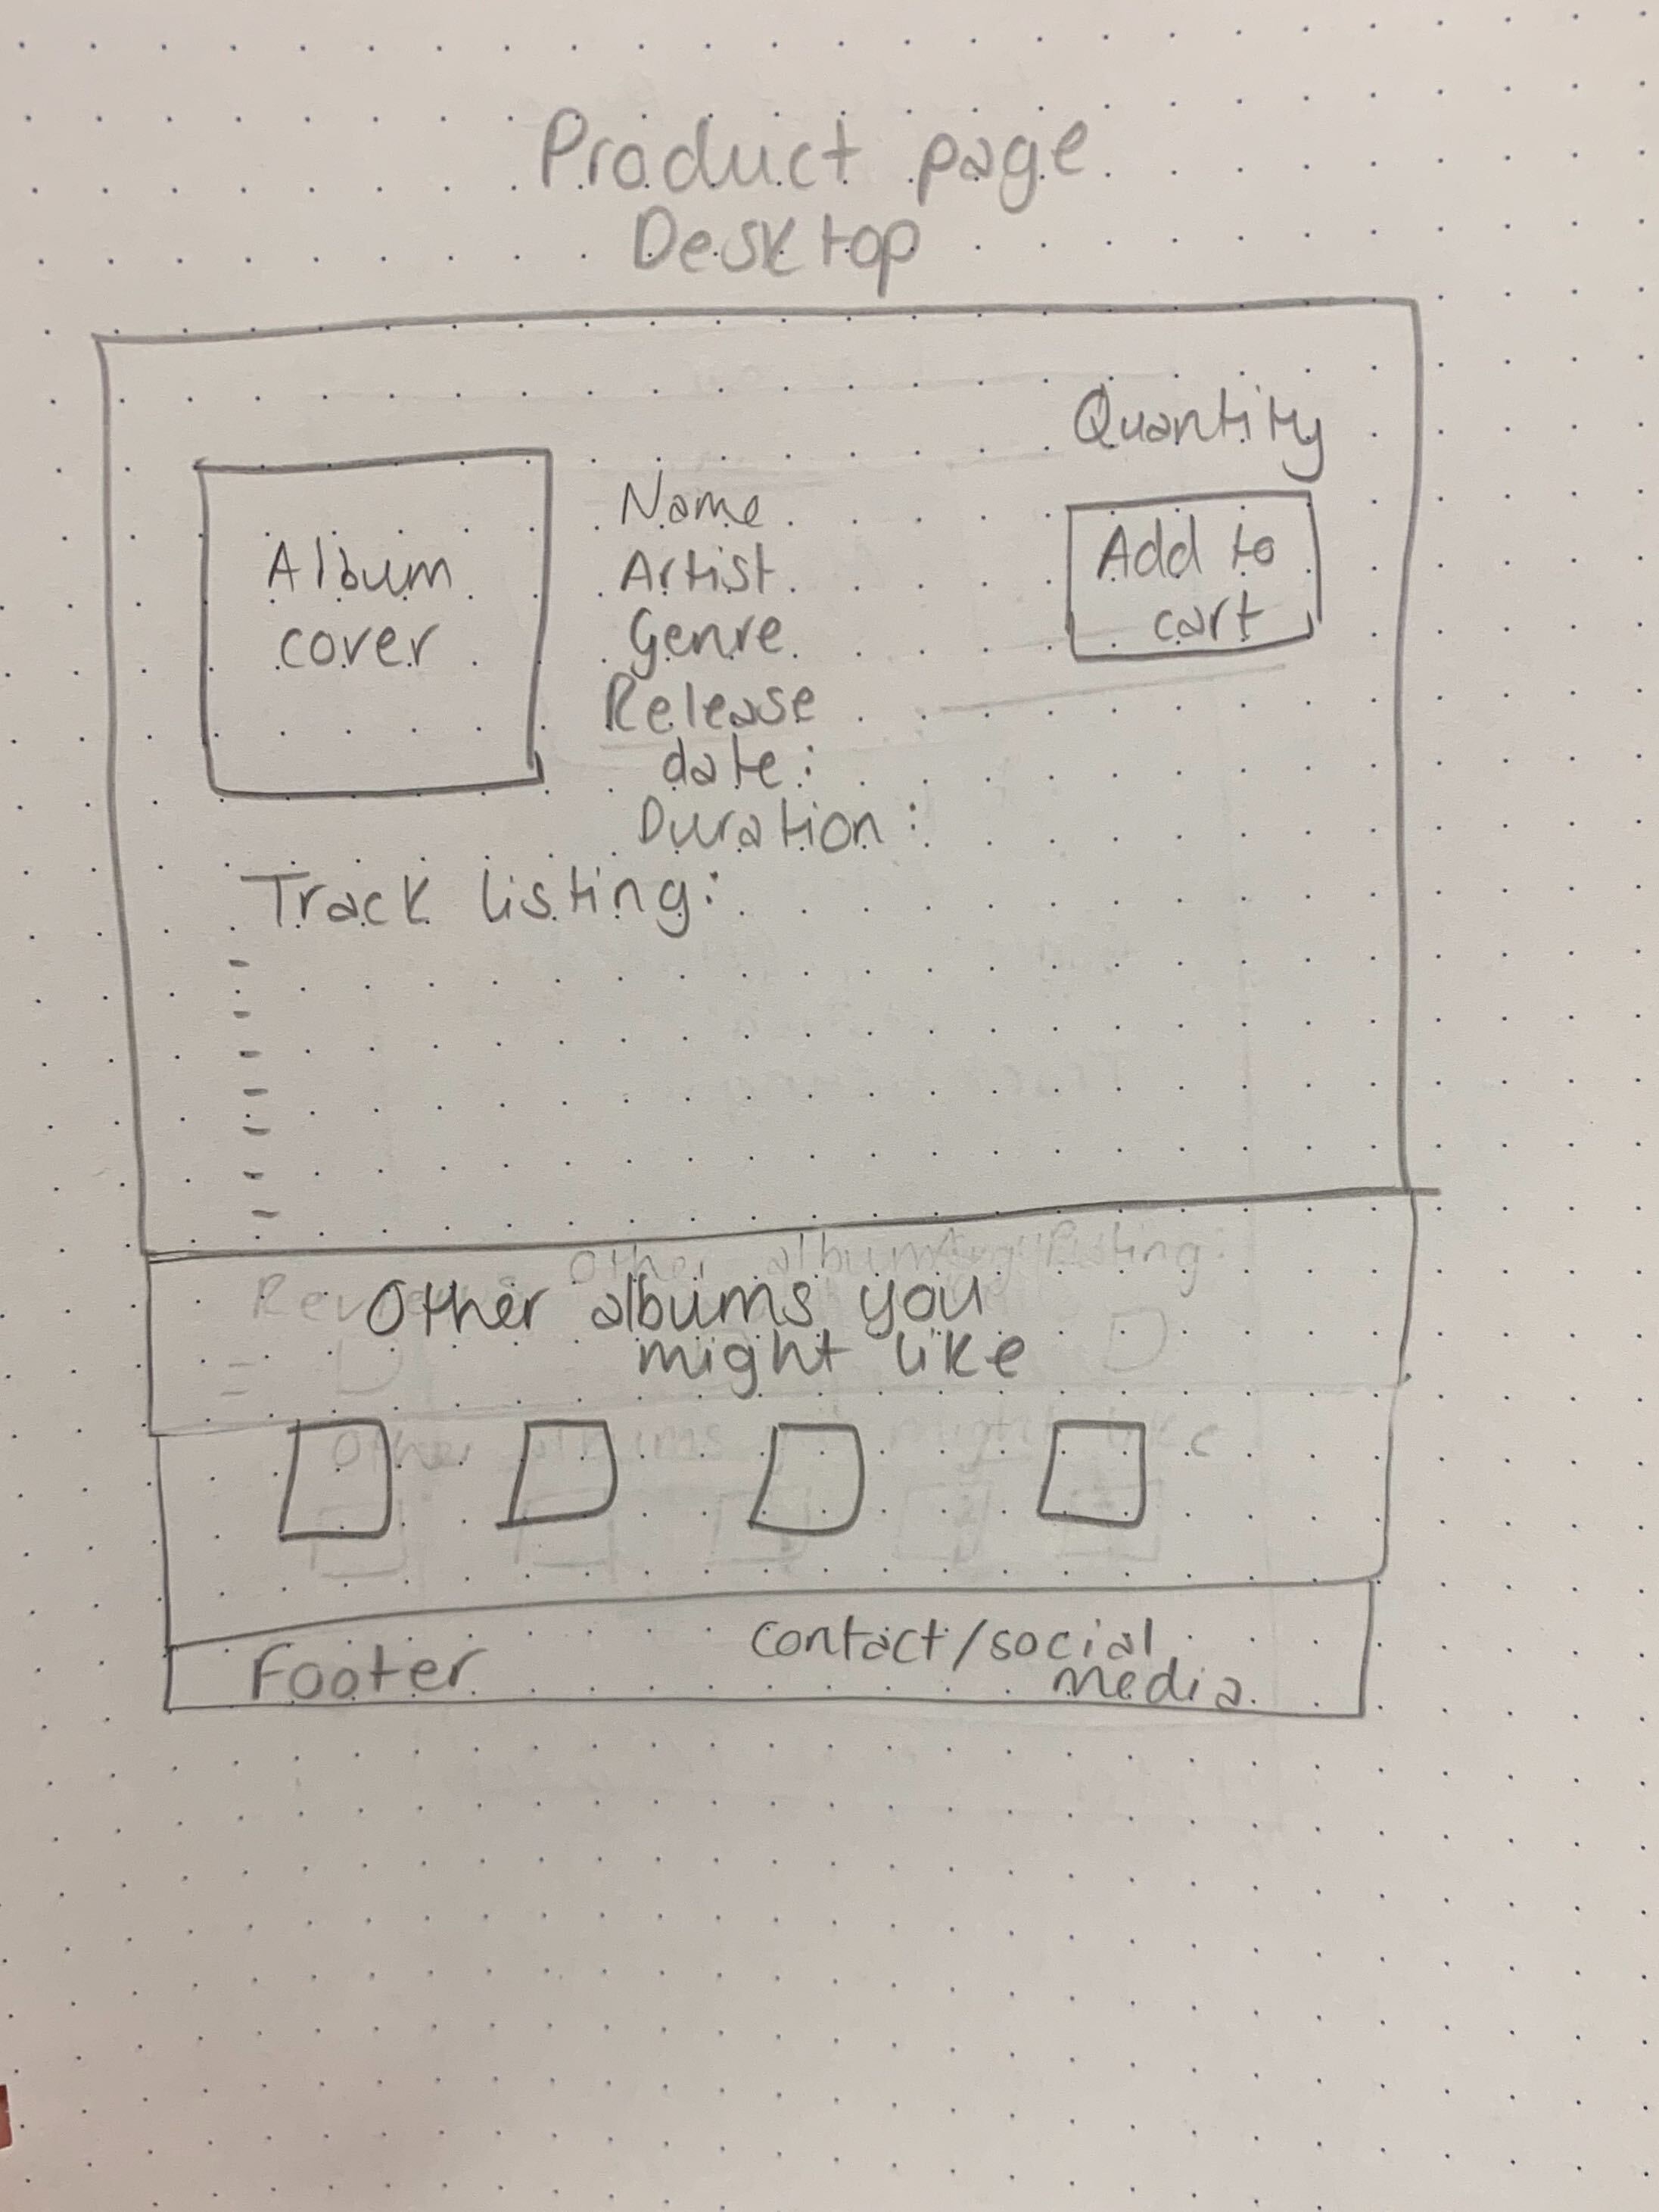 Product page
Desktop
Quantity
Album
cover
Name
Artist
Genre
Release
date:
Duration:
Add to
cart
Track listing:
-
-
-
-
-
-
-
Other albums you
might like
Footer
contact/social
media